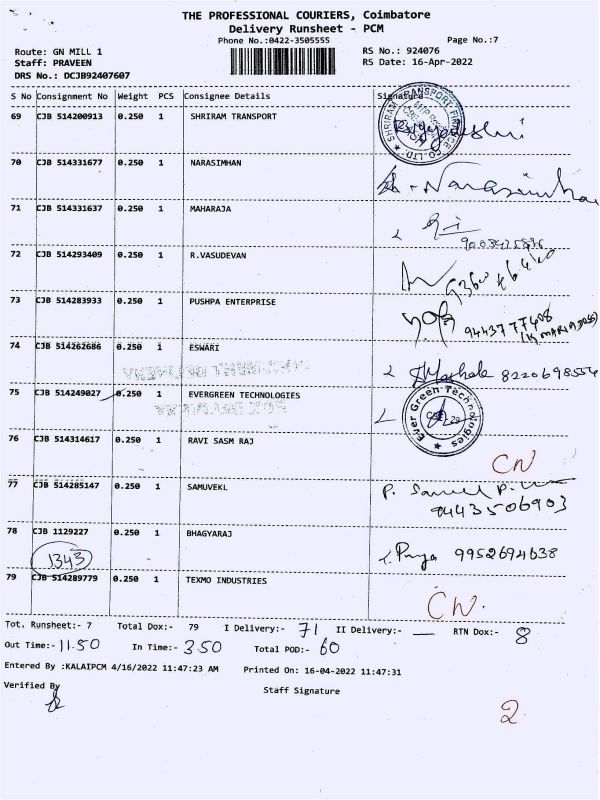 THE PROFESSIONAL COURIERS, Coimbatore
Delivery Runsheet - PCM
Phone No.:0422-3505555 Page No.:7
Route: GN MILL 1 RS No.: 924076
Staff: PRAVEEN RS Date: 16-Apr-2022
DRS No.: DCJB92407607
S No Consignment No Weight PCS Consignee Details Signature
69 CJB 514200913 0.250 1 SHRIRAM TRANSPORT
SHRIRAM TRANSPORT FINANCE CO. LTD.
70 CJB 514331677 0.250 1 NARASIMHAN
Narasimhan
71 CJB 514331637 0.250 1 MAHARAJA
72 CJB 514293409 0.250 1 R.VASUDEVAN
73 CJB 514283933 0.250 1 PUSHPA ENTERPRISE
9443777408
74 CJB 514262686 0.250 1 ESWARI
8220698554
75 CJB 514249027 0.250 1 EVERGREEN TECHNOLOGIES
Ever Green Technologies
76 CJB 514314617 0.250 1 RAVI SASM RAJ
CN
77 CJB 514285147 0.250 1 SAMUVEKL
9443506903
78 CJB 1129227 0.250 1 BHAGYARAJ
1343
Priya 9952694638
79 CJB 514289779 0.250 1 TEXMO INDUSTRIES
CN.
Tot. Runsheet:- 7 Total Dox:- 79 I Delivery:- 71 II Delivery:- — RTN Dox:- 8
Out Time:- 11.50 In Time:- 3.50 Total POD:- 60
Entered By :KALAIPCM 4/16/2022 11:47:23 AM Printed On: 16-04-2022 11:47:31
Verified By Staff Signature
2